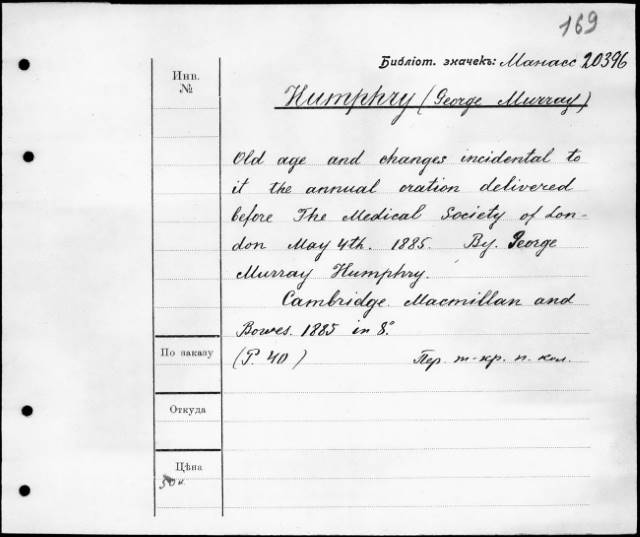 169
Библіот. значекъ: Манасс 20396
Инв.
№
Humphry (George Murray)
Old age and changes incidental to
it the annual oration delivered
before The Medical Society of Lon-
don May 4th. 1885. By. George
Murray Humphry.
Cambridge Macmillan and
Bowes. 1885 in 8°.
По заказу
(P. 40) Пер. т-кр. п. кол.
Откуда
Цѣна
50 к.